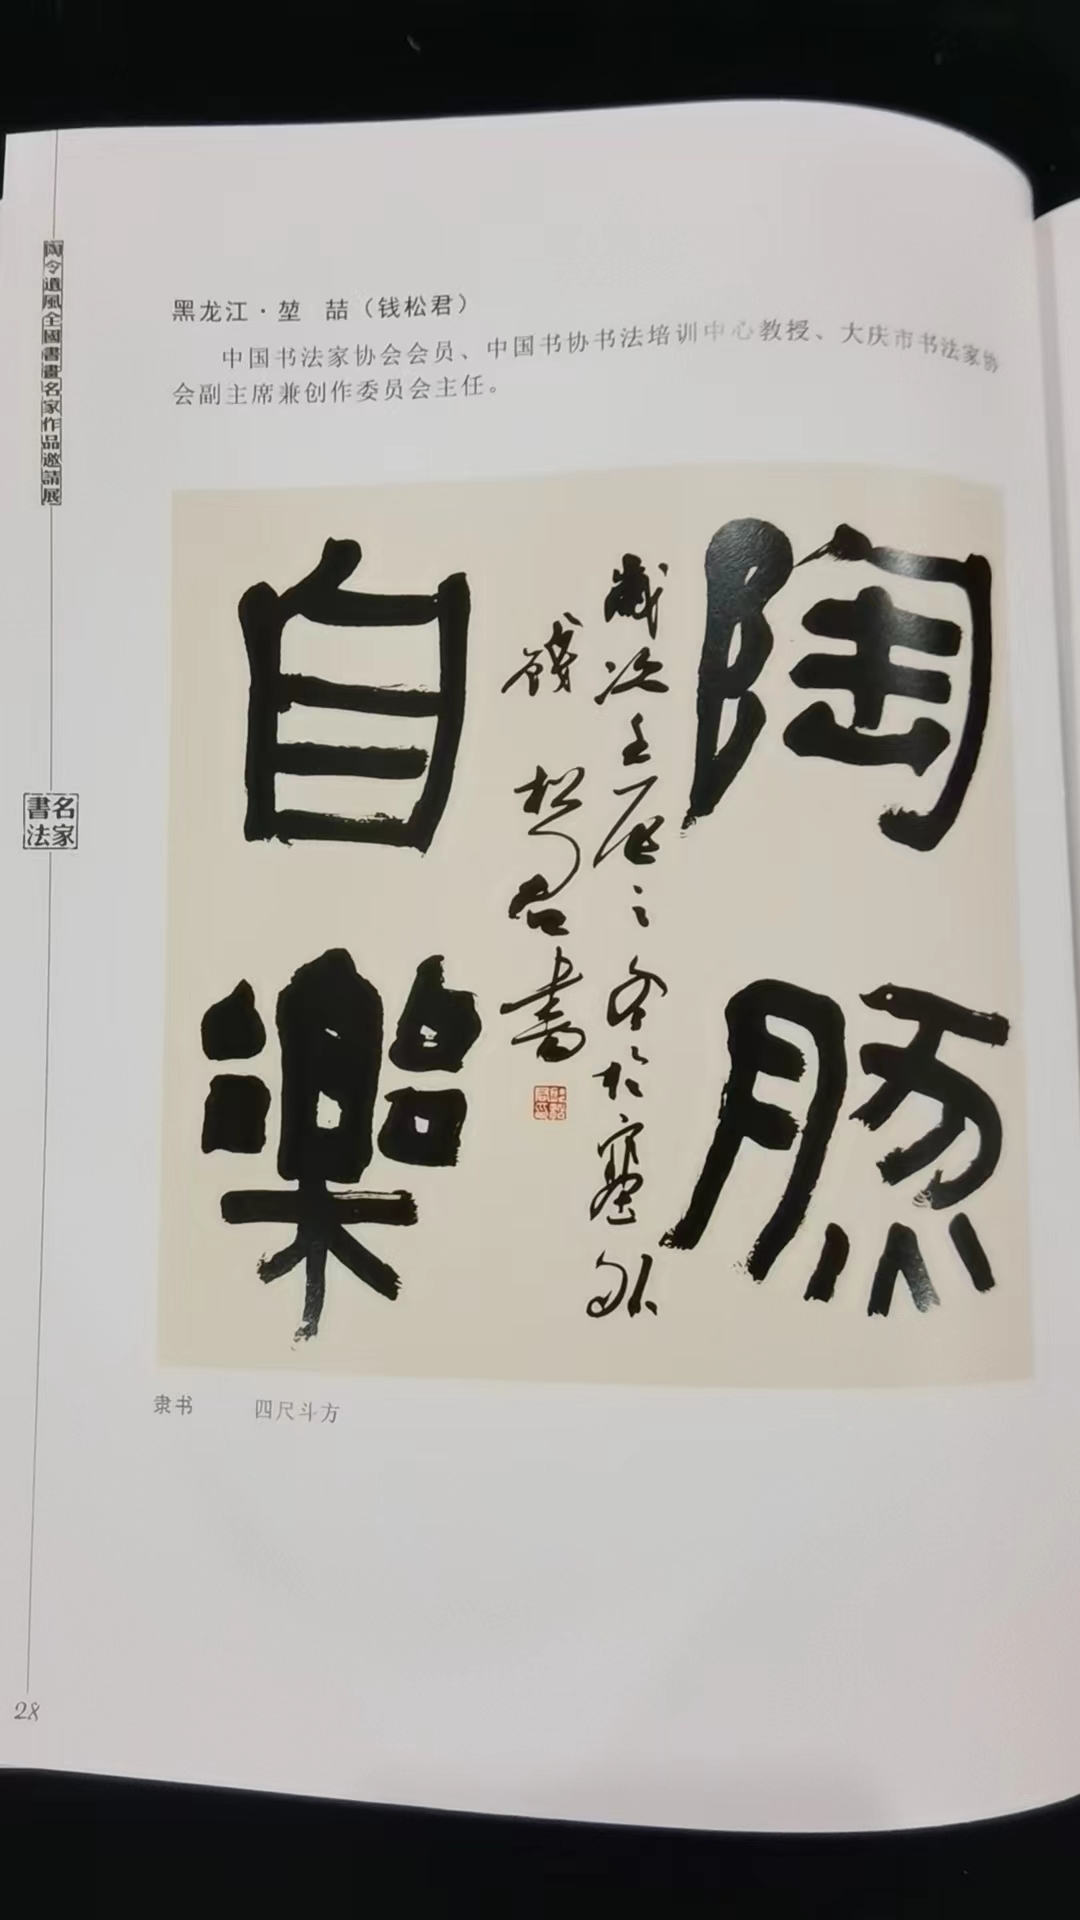 陶令遺風全國書畫名家作品邀請展
名家
書法
黑龙江·堃 喆（钱松君）
中国书法家协会会员、中国书协书法培训中心教授、大庆市书法家协
会副主席兼创作委员会主任。
陶然
自樂
歲次壬辰之冬於塞外
錢松君書
隶书 四尺斗方
28